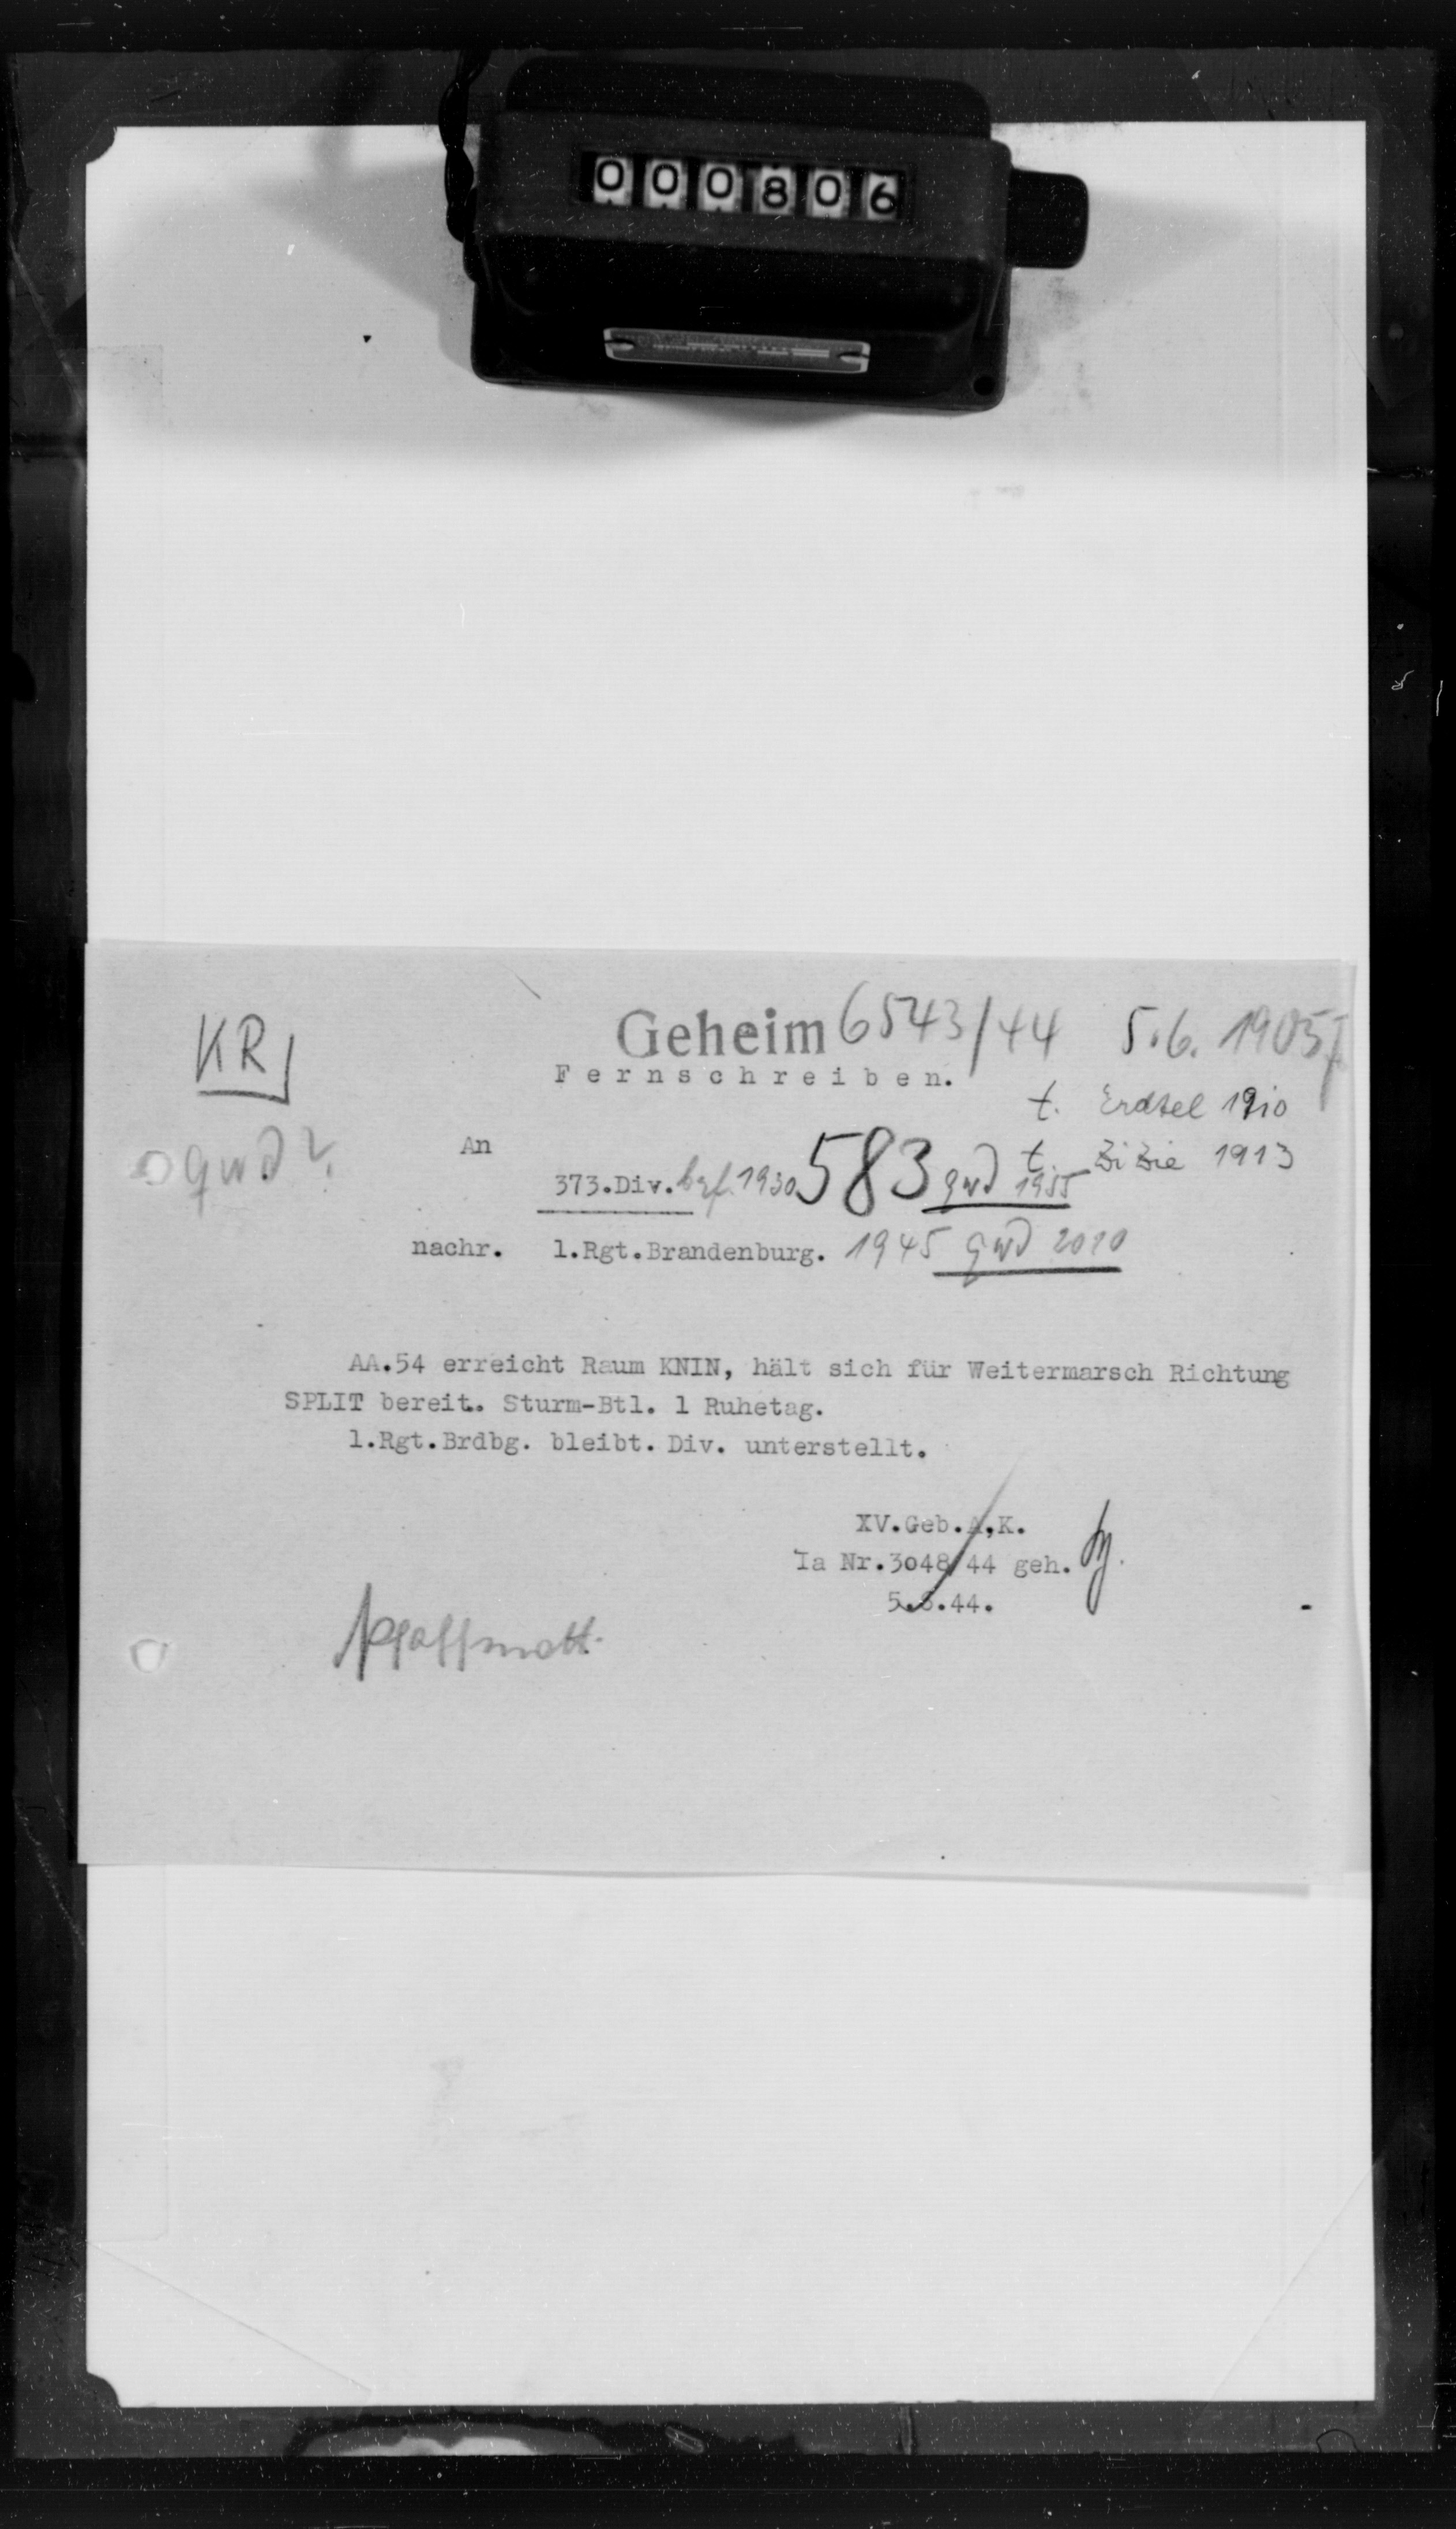 000806
KR
Geheim 6543/44 5.6. 1905
Fernschreiben.
t. Erdtel 1910
qwd?
An
t. 1913
373.Div. 1930 583 qwd 1955
nachr. 1.Rgt.Brandenburg. 1945 qwd 2010
AA.54 erreicht Raum KNIN, hält sich für Weitermarsch Richtung
SPLIT bereit. Sturm-Btl. 1 Ruhetag.
1.Rgt.Brdbg. bleibt. Div. unterstellt.
XV.Geb.A.K.
Ia Nr.3048/44 geh.
5.6.44.